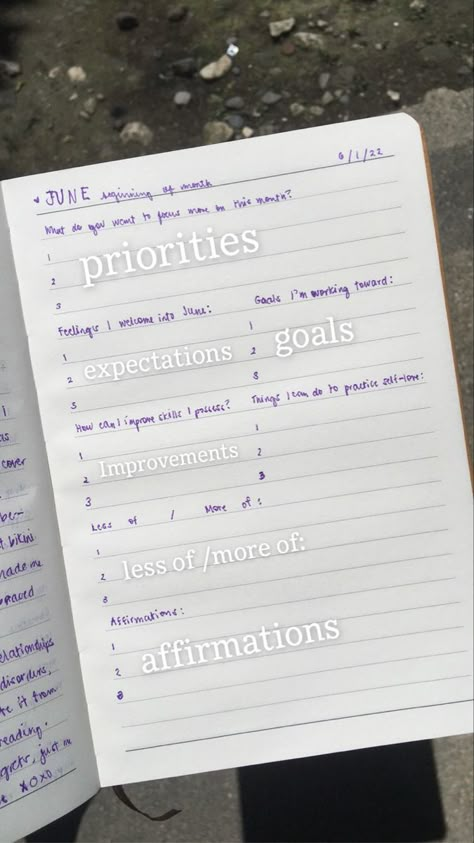 JUNE beginning of month
6/1/22
What do you want to focus more on this month?
1
2 priorities
3
Feelings I welcome into June:
1
2 expectations
3
Goals I'm working toward:
1
2 goals
3
How can I improve skills I possess?
1
2 Improvements
3
Things I can do to practice self-love:
1
2
3
Less of / More of:
1
2 less of /more of:
3
Affirmations:
1
2 affirmations
3
cover
be-
bikini
made me
relationships
disorders,
te it from
reading.
just me
XOXO